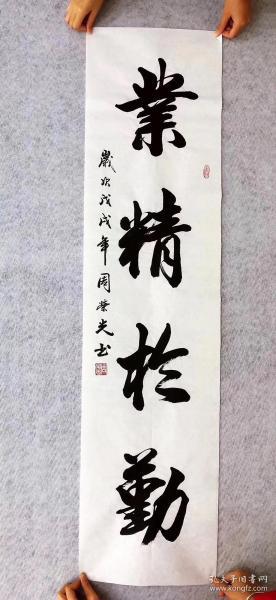 業精於勤
歲次戊戌年周榮光书
孔夫子旧书网
www.kongfz.com